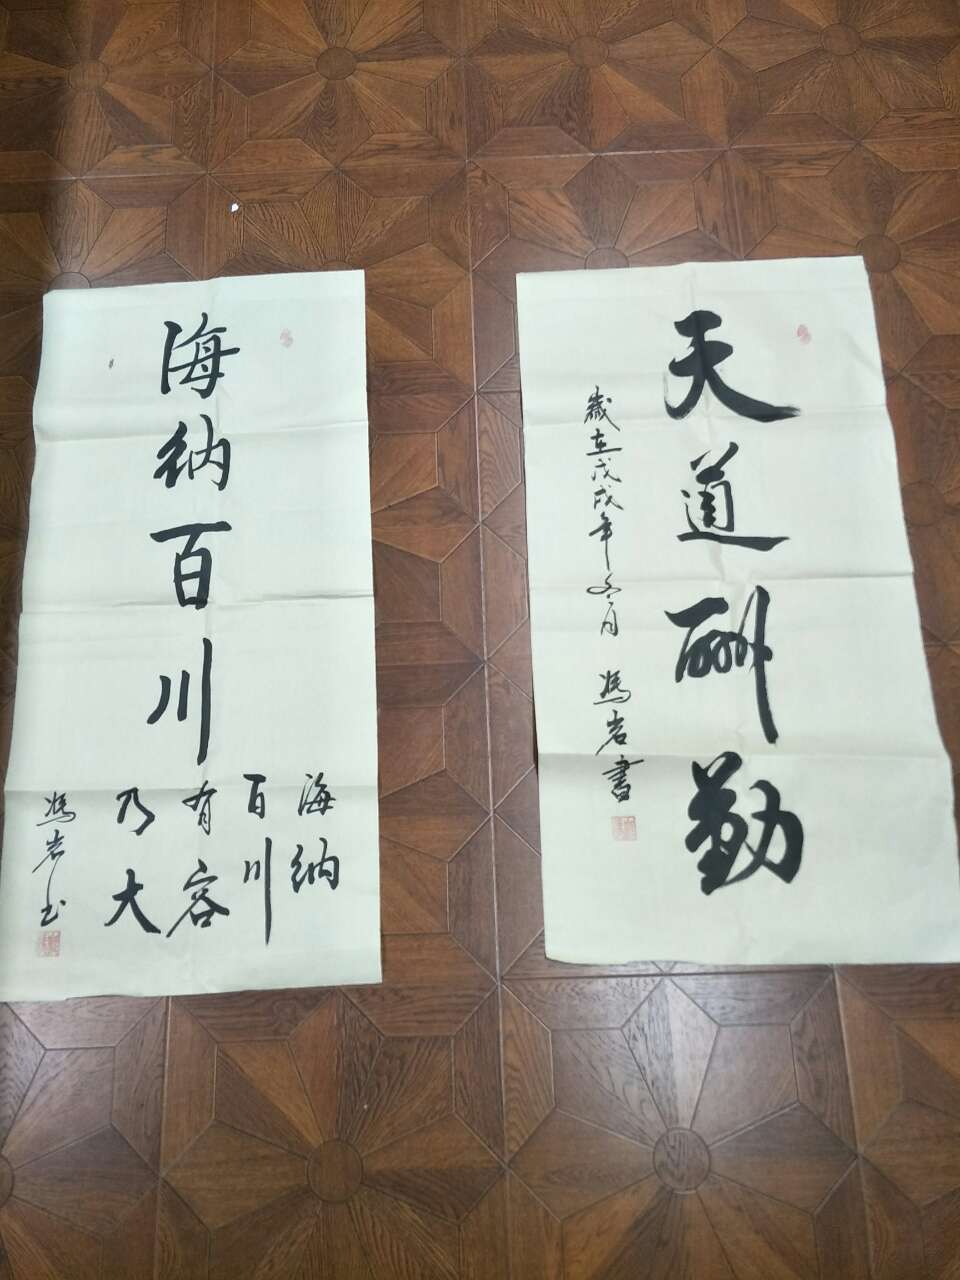 天道酬勤
歲在戊戌年冬月 馮岩書
海纳百川
海纳
百川
有容
乃大
馮岩书